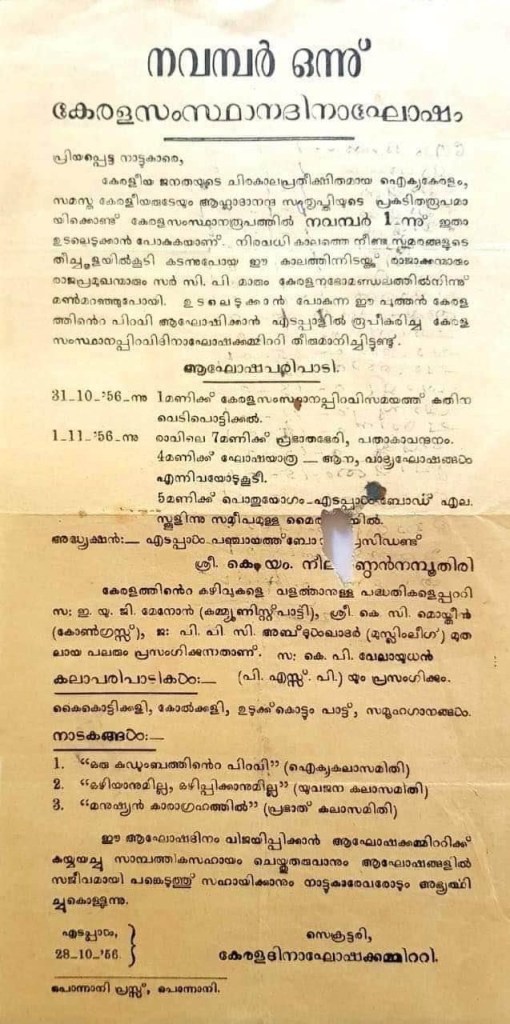 നവമ്പർ ഒന്നു്
കേരളസംസ്ഥാനദിനാഘോഷം
പ്രിയപ്പെട്ട നാട്ടുകാരെ,
കേരളീയ ജനതയുടെ ചിരകാലപ്രതീക്ഷിതമായ ഐക്യകേരളം,
സമസ്ത കേരളീയരുടേയും ആഹ്ലാദാനന്ദ സംതൃപ്തിയുടെ പ്രകടിതരൂപമാ
യിക്കൊണ്ട് കേരളസംസ്ഥാനരൂപത്തിൽ നവമ്പർ 1-ന്നു് ഇതാ
ഉടലെടുക്കാൻ പോകുകയാണ്. നിരവധി കാലത്തെ നീണ്ട സമരങ്ങളുടെ
തീച്ചൂളയിൽകൂടി കടന്നുപോയ ഈ കാലത്തിന്നിടയ്ക്കു് രാജാക്കന്മാരും
രാജപ്രമുഖന്മാരും സർ സി. പി. മാരും കേരളനഭോമണ്ഡലത്തിൽനിന്നു്
മൺമറഞ്ഞുപോയി. ഉടലെടുക്കാൻ പോകുന്ന ഈ പുത്തൻ കേരള
ത്തിന്റെ പിറവി ആഘോഷിക്കാൻ എടപ്പാളിൽ രൂപീകരിച്ച കേരള
സംസ്ഥാനപ്പിറവിദിനാഘോഷക്കമ്മിററി തീരുമാനിച്ചിട്ടുണ്ടു്.
ആഘോഷപരിപാടി.
31-10-'56-നു 1മണിക്ക് കേരളസംസ്ഥാനപ്പിറവിസമയത്ത് കതിന
വെടിപൊട്ടിക്കൽ.
1-11-'56-നു രാവിലെ 7മണിക്ക് പ്രഭാതഭേരി, പതാകാവന്ദനം.
4മണിക്ക് ഘോഷയാത്ര — ആന, വാദ്യഘോഷങ്ങൾ
എന്നിവയോടുകൂടി.
5മണിക്ക് പൊതുയോഗം-എടപ്പാൾ ബോഡ് എല.
സ്കൂളിന്നു സമീപമുള്ള
അദ്ധ്യക്ഷൻ:— എടപ്പാൾ പഞ്ചായത്ത്ബോ
ശ്രീ. കെ. യം.
കേരളത്തിന്റെ കഴിവുകളെ വളത്താനുള്ള പദ്ധതികളെപ്പററി
സ: ഇ. യു. ജി. മേനോൻ (കമ്മ്യൂണിസ്റ്റ്പാട്ടി), ശ്രീ. കെ. സി. മൊയ്തീൻ
(കോൺഗ്രസ്സ്), ജ: പി. പി. സി. അബ്ദുൾഖാദർ (മുസ്ലിംലീഗ്) മുത
ലായ പലരും പ്രസംഗിക്കുന്നതാണ്. സ: കെ. പി. വേലായുധൻ
(പി. എസ്സ്. പി.) യും പ്രസംഗിക്കും.
കലാപരിപാടികൾ:—
കൈകൊട്ടിക്കളി, കോൽക്കളി, ഉടുക്ക്കൊട്ടും പാട്ട്, സമൂഹഗാനങ്ങൾ.
നാടകങ്ങൾ:—
1. “ഒരു കുടുംബത്തിന്റെ പിറവി” (ഐക്യകലാസമിതി)
2. “ഒഴിയാനുമില്ല, ഒഴിപ്പിക്കാനുമില്ല” (യുവജന കലാസമിതി)
3. “മനുഷ്യൻ കാരാഗ്രഹത്തിൽ” (പ്രഭാത് കലാസമിതി)
ഈ ആഘോഷദിനം വിജയിപ്പിക്കാൻ ആഘോഷക്കമ്മിററിക്ക്
കയ്യയച്ചു സാമ്പത്തികസഹായം ചെയ്തുതരുവാനും ആഘോഷങ്ങളിൽ
സജീവമായി പങ്കെടുത്ത് സഹായിക്കാനും നാട്ടുകാരേവരോടും അഭ്യത്ഥി
ച്ചുകൊള്ളുന്നു.
എടപ്പാൾ,
28-10-'56.
സെക്രട്ടരി,
കേരളദിനാഘോഷക്കമ്മിററി.
പൊന്നാനി പ്രസ്സ്, പെന്നോനി.